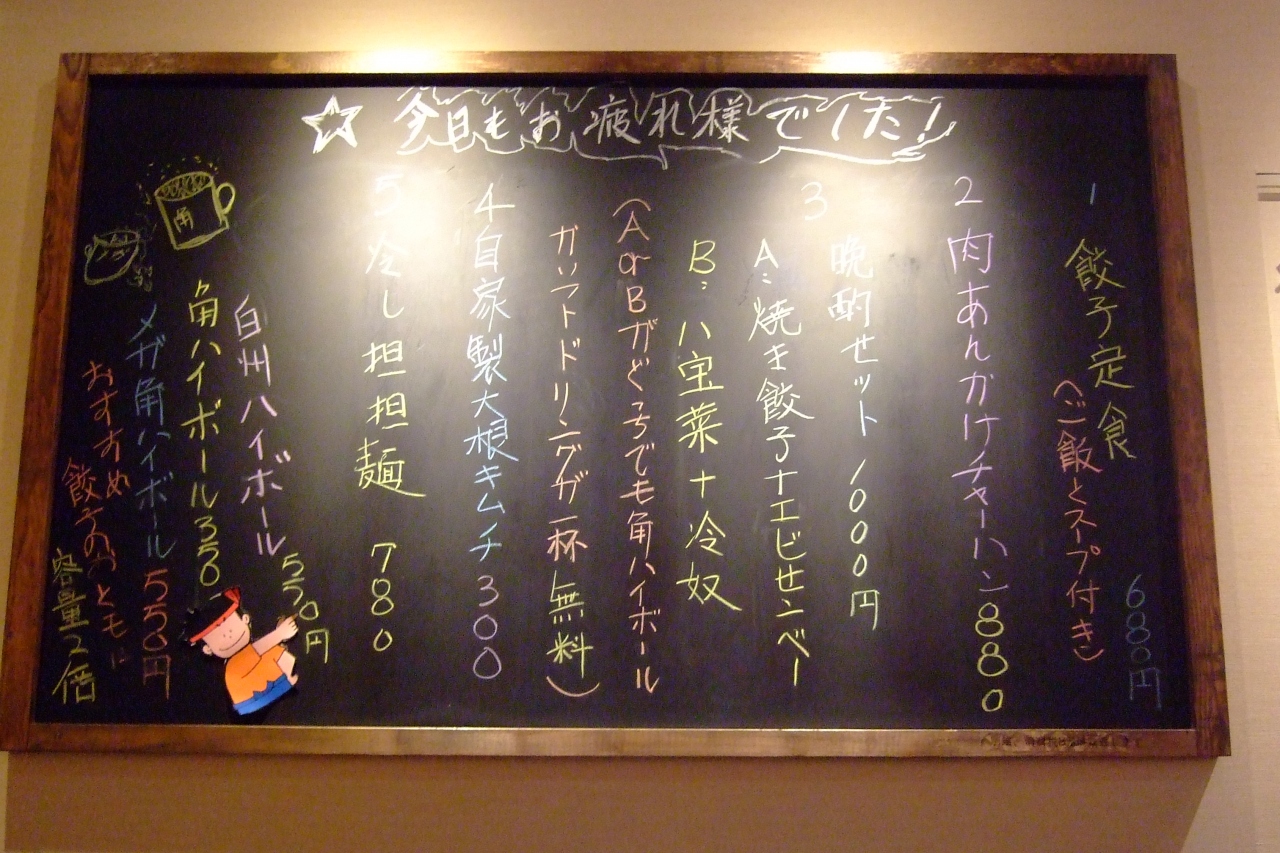 ☆今日もお疲れ様でした!
1 餃子定食 680円
(ご飯とスープ付き)
2 肉あんかけチャーハン 880
3 晩酌セット 1000円
A:焼き餃子+エビセンベー
B:八宝菜+冷奴
(AorBがどっちでも角ハイボール
がソフトドリンクが一杯無料)
4 自家製大根キムチ 300
5 冷し担担麺 780
白州ハイボール 550円
角ハイボール 350
メガ角ハイボール 550円
おすすめ
餃子のおともに
容量2倍
角